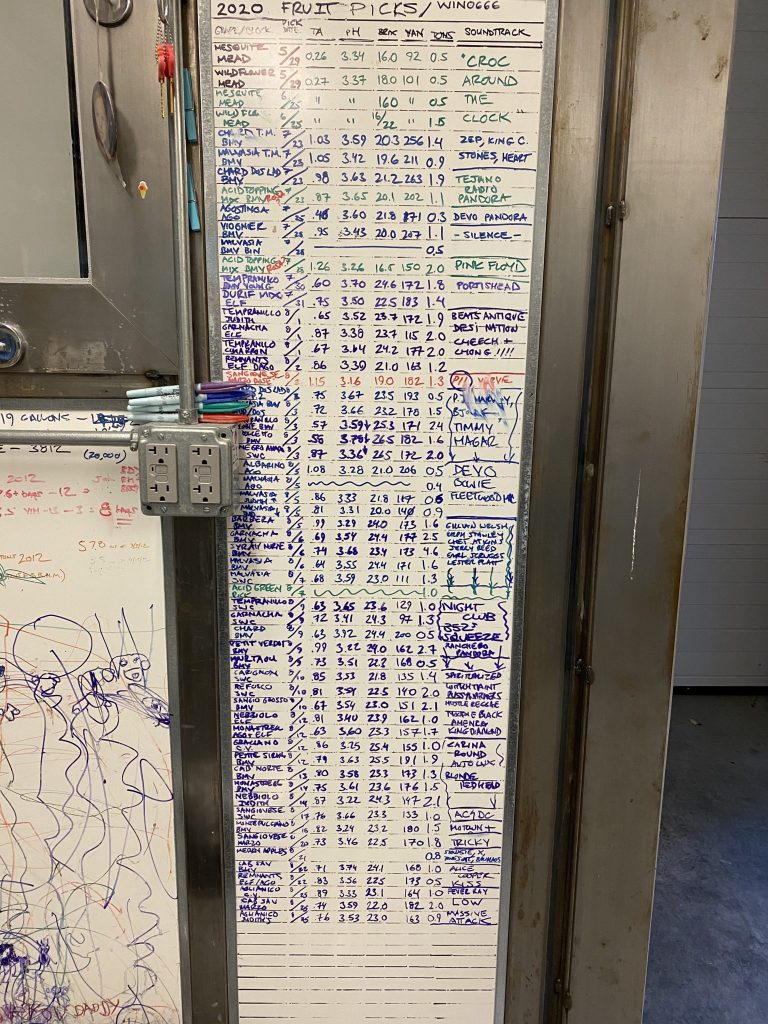 2020 FRUIT PICKS / WINO666
GRAPE/BLOCK PICK DATE TA PH BRIX YAN TONS SOUNDTRACK
MESQUITE MEAD 5/29 0.26 3.34 16.0 92 0.5 "CROC
WILDFLOWER MEAD 5/29 0.27 3.37 18.0 101 0.5 AROUND
MESQUITE MEAD 6/25 " " 160 " 0.5 THE
MEAD 6/25 " " 16/22 " 1.5 CLOCK"
CHARD T.M. BMV 7/23 1.03 3.59 20.3 256 1.4 ZEP, KING C.
MALVASIA T.M. BMV 7/23 1.05 3.42 19.6 211 0.9 STONES, HEART
CHARD DOS LAD BMV 7/23 .98 3.63 21.2 263 1.9 TEJANO RADIO
ACID TOPPING MIX BMV 7/23 .87 3.65 20.1 202 1.1 PANDORA
AGOSTINGA AGO 7/25 3.60 21.8 171 0.3 DEVO PANDORA
VIOGNIER BMV 7/28 .95 3.43 20.0 207 1.1 -SILENCE-
MALVASIA BMV BIN 7/28 0.5
ACID TOPPING MIX BMV 7/28 1.26 3.26 16.5 150 2.0 PINK FLOYD
TEMPRANILLO BMV YOUNG 7/30 .60 3.70 24.6 172 1.8 PORTISHEAD
DURIF MDX ELF 7/31 .75 3.50 22.5 183 1.4
TEMPRANILLO JUDITH 8/1 .65 3.52 23.7 172 1.9 BEATS ANTIQUE
GARNACHA ELF 8/1 .87 3.38 23.7 115 2.0 DESI NATION
TEMPRANILLO CIMARRON 8/1 .67 3.64 24.2 177 2.0 CHEECH +
REMNANTS ELF DAGO 8/2 .86 3.39 21.0 163 1.2 CHONG !!!!
SANGIOVESE MARZO ROSE 1.15 3.16 19.0 182 1.3 VERVE
DOS LAD .75 3.67 23.5 193 0.5 PJ HARVEY,
.72 3.66 23.2 178 1.5 BJORK
BMV 8/3 .57 3.59 25.3 171 2.4 TIMMY
BMV 8/3 .56 26.5 182 1.6 HAGAR
NEGROAMARO SWC 8/3 .87 3.36 26.5 172 2.0
ALBARINO AGO 8/5 1.08 3.28 21.0 206 0.5 DEVO
MALVASIA AGO 8/5 0.4 BOWIE
MALVASIA JUDITH 8/5 .86 3.33 21.8 0.6 FLEETWOOD MAC
MALVASIA 8/5 .81 3.31 20.0 140 0.9
BARBERA BMV 8/6 .99 3.29 24.0 173 1.6 GILLIAN WELSH
GARNACHA BMV 8/6 .69 3.54 24.4 177 2.5 RALPH STANLEY CHET ATKINS
SYRAH NORTE BMV 8/6 .74 3.68 23.4 173 4.6 JERRY REED EARL SCRUGGS
MALVASIA BMV .64 3.55 24.4 171 1.6 LESTER FLATT
MALVASIA SWC 8/7 .68 3.59 23.0 111 1.3
ACID GREEN 8/7 1.0
TEMPRANILLO SWC 8/9 .63 3.65 23.6 129 1.0 NIGHT
GARNACHA SWC 8/9 .72 3.41 24.3 97 1.3 CLUB
CHARD BMV 8/9 .63 3.92 24.4 200 0.5 SQUEEZE
PETIT VERDOT BMV 8/9 .99 3.22 24.0 162 2.7 RANCHERO PANDORA
BMV 8/9 .73 3.51 22.2 168 0.5
CARIGNAN SWC 8/10 .85 3.53 21.8 135 1.4 SPIRITUALIZED
REFOSCO SWC 8/10 .81 3.59 22.5 140 2.0 WITCH TAINT
SANGIO GROSSO BMV 8/10 .67 3.54 23.0 151 2.1
NEBBIOLO ELF 8/12 .81 3.40 23.9 162 1.0
MONASTRELL AGO+ELF 8/12 .63 3.60 23.3 157 1.7 AMENRA KING DIAMOND
GRACIANO C.V. 8/12 .86 3.25 25.4 155 1.0 ZARINA
PETITE SIRAH BMV 8/12 .79 3.63 25.5 191 1.9 -ROUND AUTOLUX
CAB NORTE BMV 8/13 .80 3.58 23.3 173 1.3 BLONDE
MONASTRELL BMV 8/14 .75 3.61 23.6 176 1.5 REDHEAD
NEBBIOLO JUDITH 8/14 .87 3.22 24.3 147 2.1
SANGIOVESE SWC 8/17 .76 3.66 23.3 133 1.0 AC/DC
MONTEPULCIANO BMV 8/18 .82 3.24 23.2 180 1.5 MOTOWN +
SANGIOVESE MARZO 8/20 .73 3.46 22.5 170 1.8 TRICKY
APPLES 8/21 0.8 SIOUXSIE, X, BAUHAUS
CAB SAV BMV 8/22 .71 3.74 24.1 168 1.0 ALICE COOPER
REMNANTS ELF/AGO 8/22 .83 3.56 22.5 173 0.5 KISS
AGLIANICO C.V. 8/25 .89 3.33 23.1 164 1.0 FEVER RAY
CAB SAV MARZO 8/25 .74 3.59 22.0 182 2.0 LOW
AGLIANICO JUDITHS 8/25 .76 3.53 23.0 163 0.9 MASSIVE ATTACK
19 GALLONS -
- 3812
(20,000)
2012
DAYS -12 =
-13 -3 = 8 DAYS
2012
DADDY